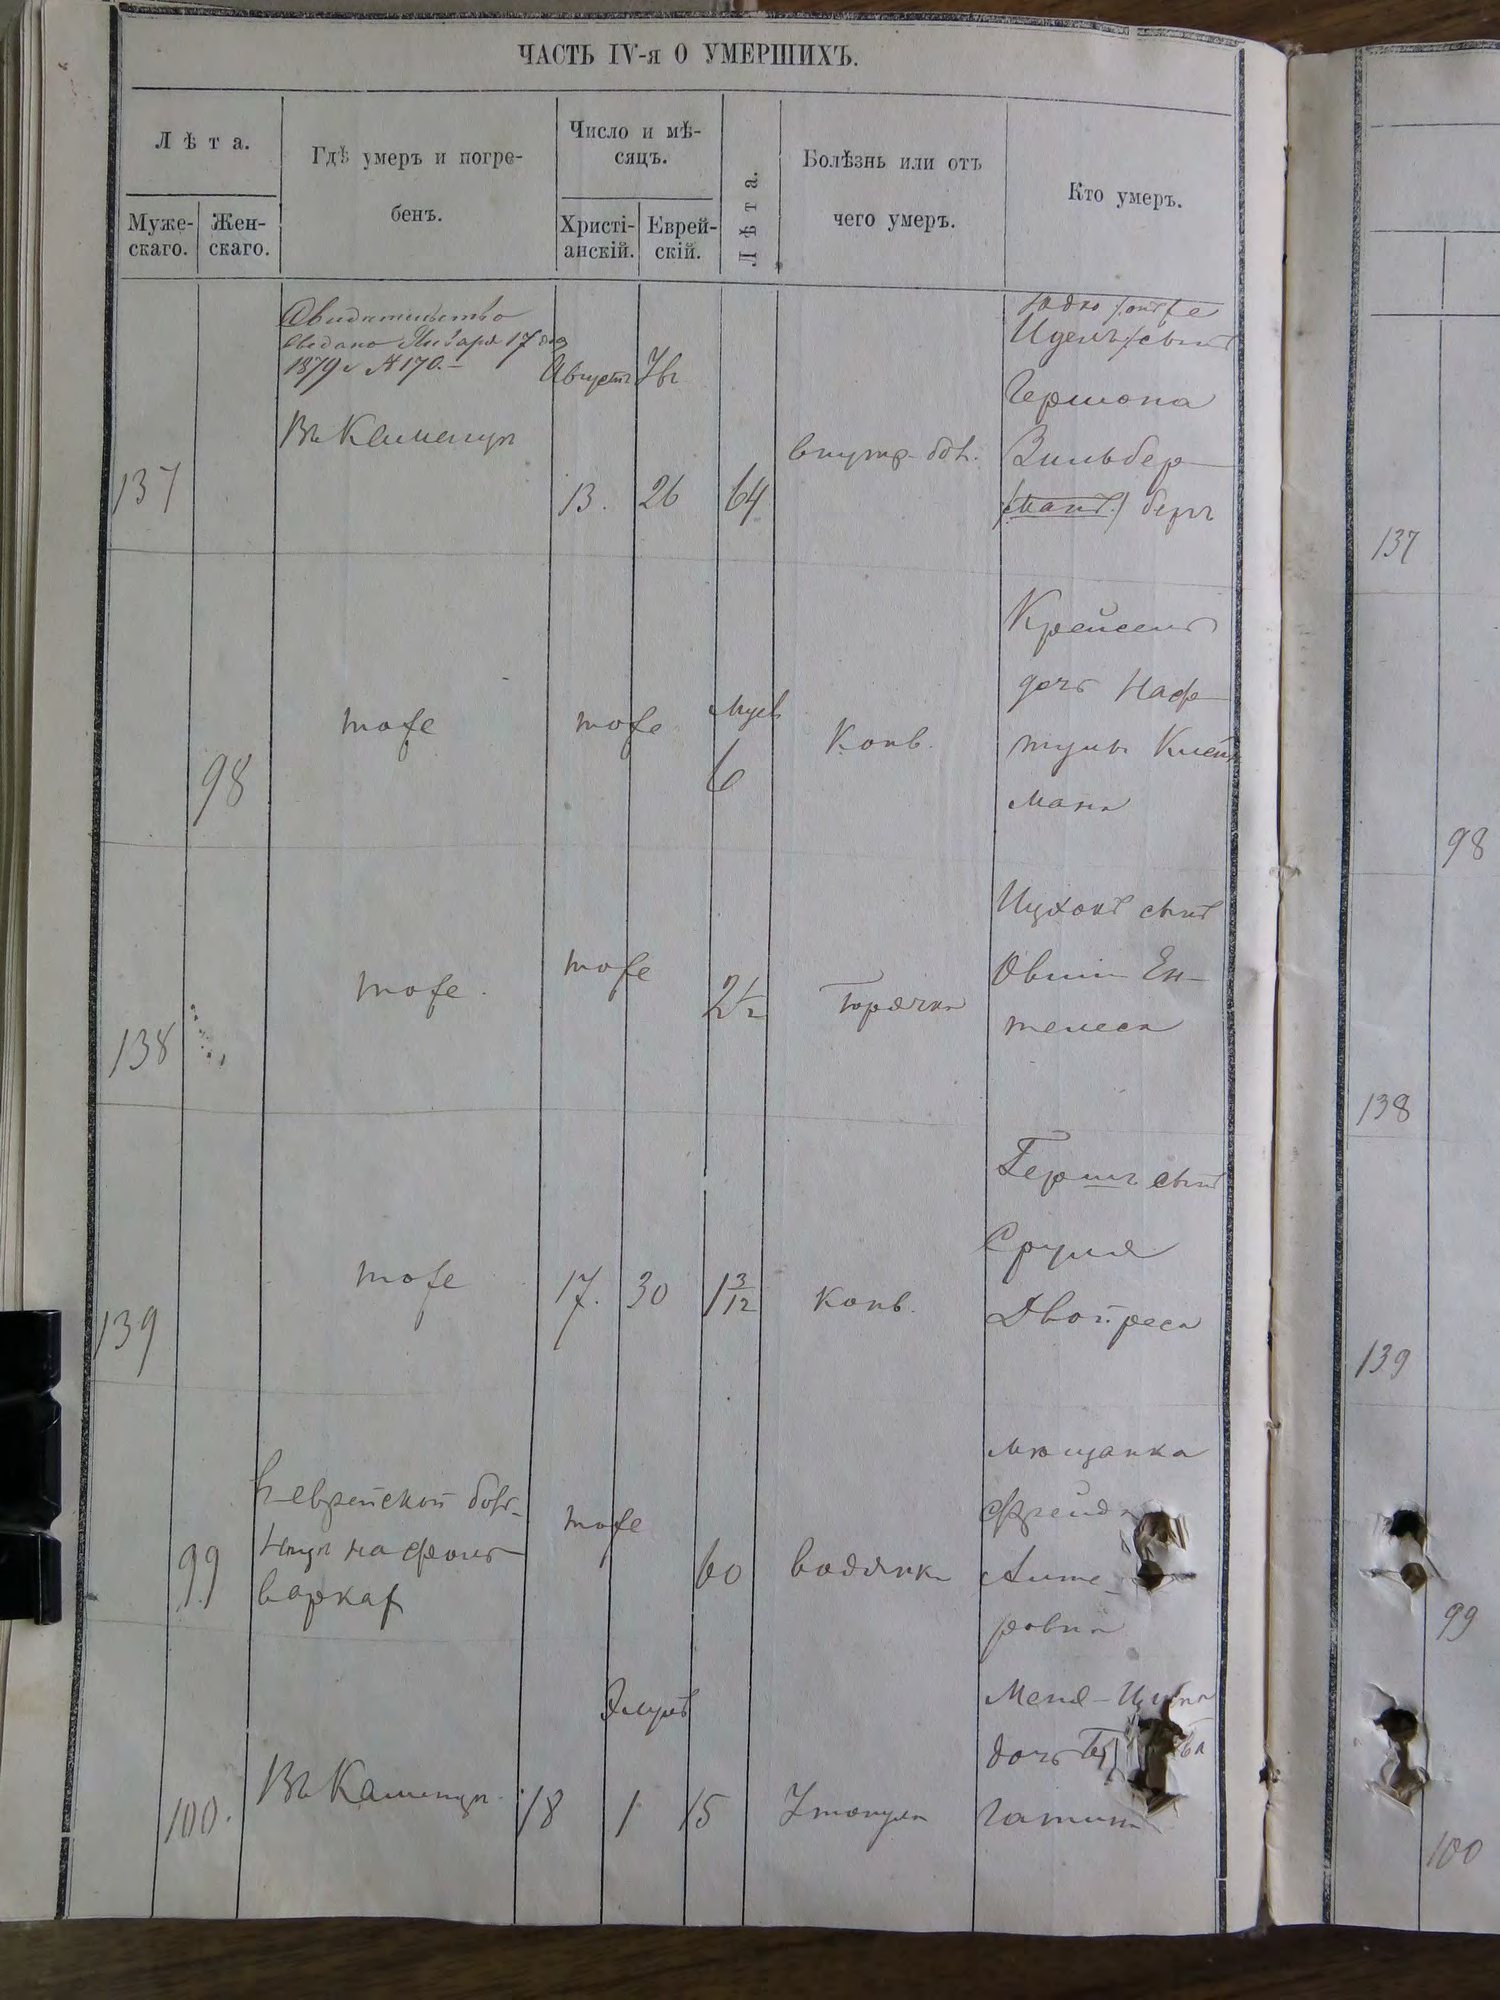 ЧАСТЬ IV-я О УМЕРШИХЪ.
Лѣта.
Муже-
скаго.
Жен-
скаго.
Гдѣ умеръ и погре-
бенъ.
Число и мѣ-
сяцъ.
Христі-
анскій.
Еврей-
скій.
Лѣта.
Болѣзнь или отъ
чего умеръ.
Кто умеръ.
137
Свидетельство
выдано Января 17 дня
1879 г №170.—
Въ Каменцѣ
Августъ
13.
Увъ
26
64
внутр. бол.
Юдко
Идель сынъ
Гершона
Зильбер
(манъ) бергъ
98
тоже
тоже
Муев
6
Конв.
Крейсель
дочь Наф
тулы Клей
мана
138
тоже.
тоже
2½
Горячка
Ицхокъ сынъ
Овши Ен-
телеса
139
тоже
17.
30
1 3/12
Конв.
Гершъ сынъ
Сруля
Двойреса
99
В еврейской бол-
ницѣ на фольъ
варках
тоже
60
водянка
Мѣщанка
Фрейда
Лите-
ровна
100.
Въ Каменцѣ
18
Элулъ
1
15
Утонула
Меня-
дочь
137
98
138
139
99
100